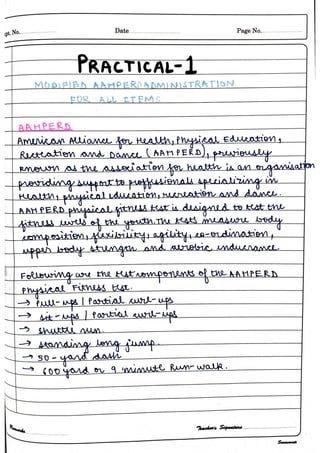 pt. No.
Date
Page No.
PRACTICAL-1
MODIFIED AAMPERD ADMINISTRATION
FOR ALL ITEMS
AAMPERD
American Alliance for Health, Physical Education,
Recreation and Dance (AAHPERD), previously
known as the association for health is an organisation
providing support to proffesionals specializing in
health, physical education, recreation and dance.
AAMPERD physical fitness test is designed to test the
fitness levels of the youth. The tests measure body
composition, flexibility, agility, co-ordination,
upper body strength and aerobic endurance.
Following are the test components of the AAMPERD
Physical Fitness test.
→ Pull-ups / Partial curl-ups
→ Sit-ups / Partial curl-ups
→ Shuttle run.
→ Standing long jump.
→ 50-yard dash
→ 600 yard or 9 minute Run-walk.
Remarks
Teacher's Signature